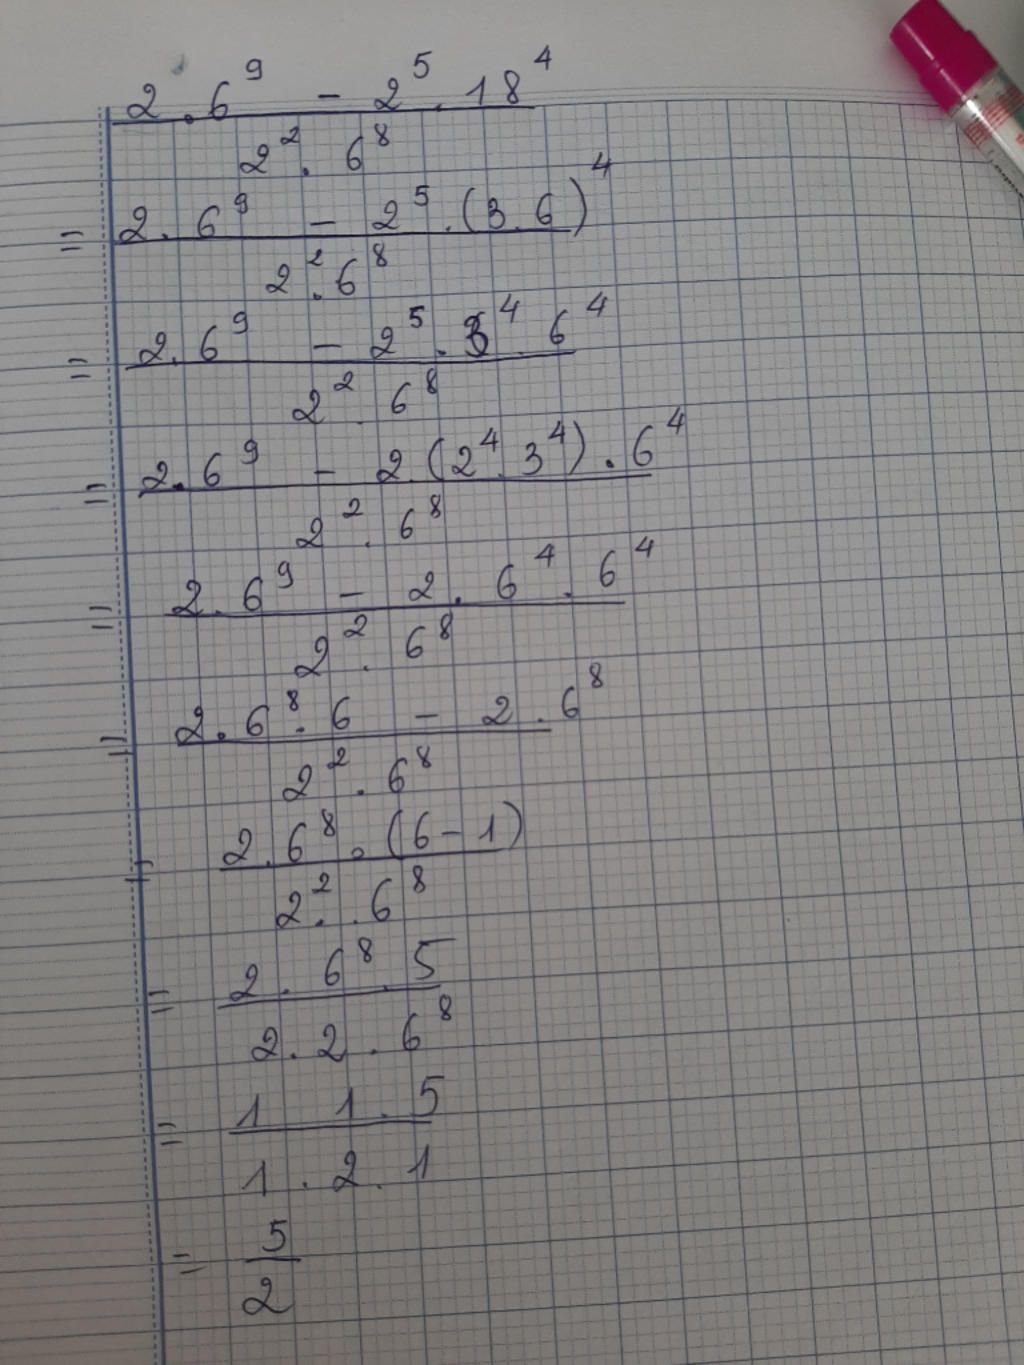 2 . 6⁹ - 2⁵ . 18⁴
2² . 6⁸
= 2 . 6⁹ - 2⁵ . (3 . 6)⁴
2² . 6⁸
= 2 . 6⁹ - 2⁵ . 3⁴ . 6⁴
2² . 6⁸
= 2 . 6⁹ - 2 . (2⁴ . 3⁴) . 6⁴
2² . 6⁸
= 2 . 6⁹ - 2 . 6⁴ . 6⁴
2² . 6⁸
= 2 . 6⁸ . 6 - 2 . 6⁸
2² . 6⁸
= 2 . 6⁸ . (6 - 1)
2² . 6⁸
= 2 . 6⁸ . 5
2 . 2 . 6⁸
= 1 . 1 . 5
1 . 2 . 1
= 5
2